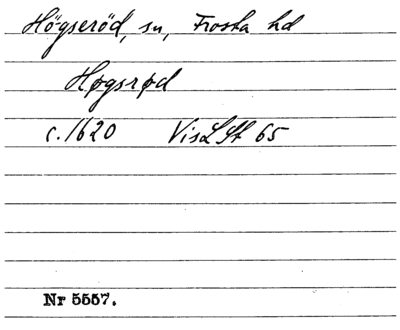 Högseröd, sn, Frosta hd
Høgsrød
c. 1620 VisLSt 65
Nr 5557.